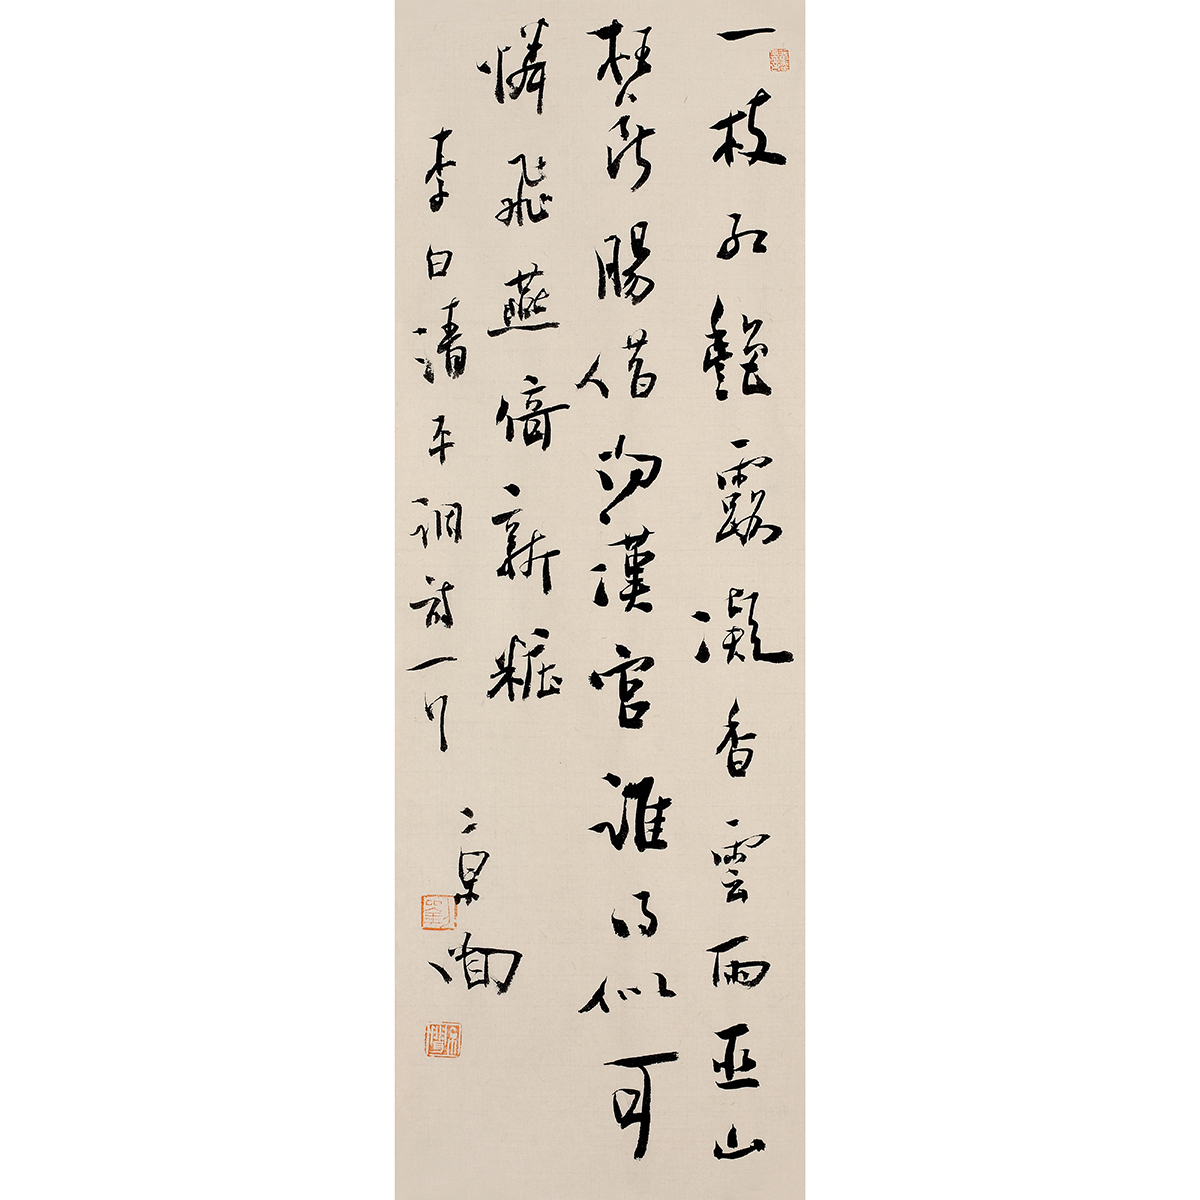 一枝紅艷露凝香雲雨巫山
枉斷腸借問漢宮誰得似可
憐飛燕倚新粧
李白清平調詩一